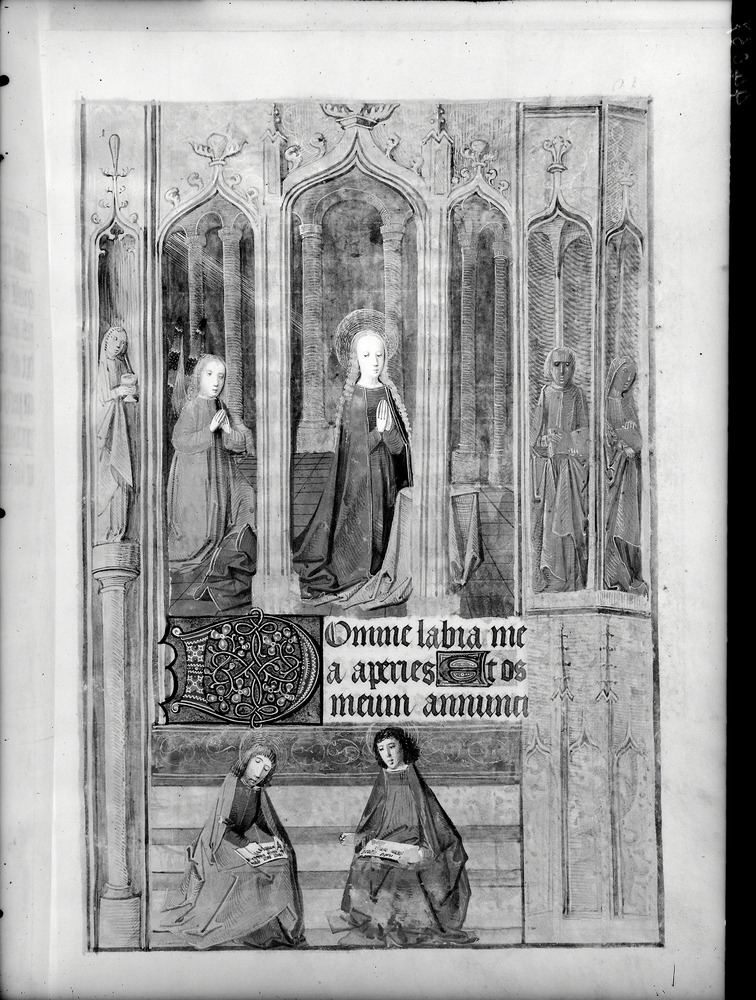 Domine labia me
a aperies Et os
meum annunci